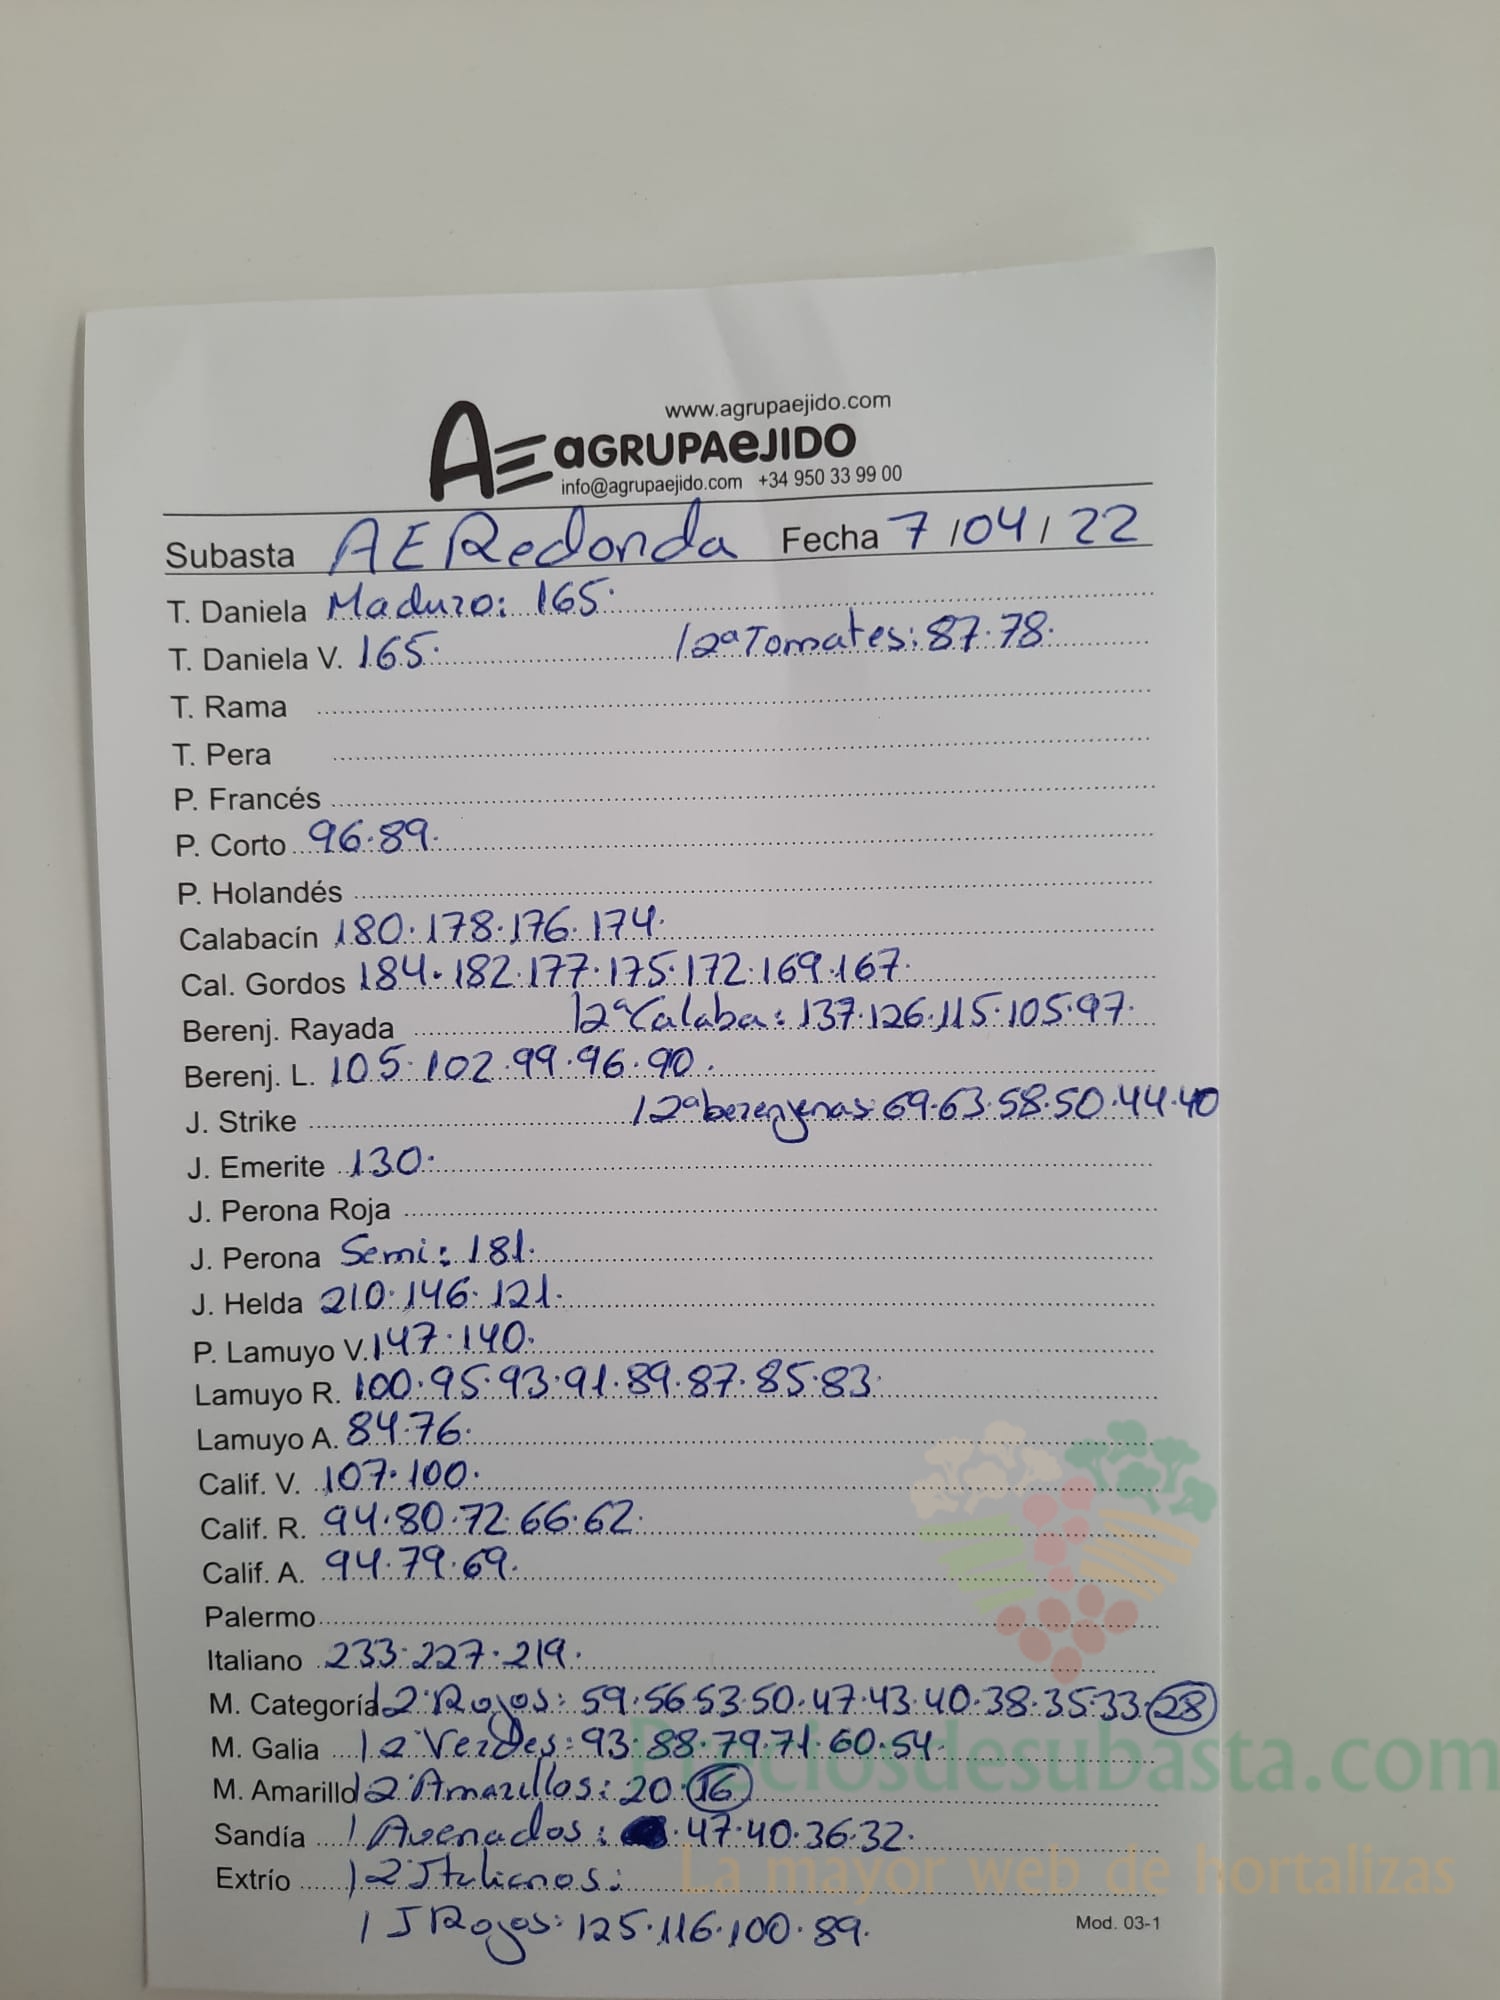 www.agrupaejido.com
AE aGRUPAeJIDO
info@agrupaejido.com +34 950 33 99 00
Subasta AE Redonda Fecha 7/04/22
T. Daniela Maduro: 165.
T. Daniela V. 165. / 2ª Tomates: 87.78.
T. Rama
T. Pera
P. Francés
P. Corto 96.89.
P. Holandés
Calabacín 180.178.176.174.
Cal. Gordos 184.182.177.175.172.169.167.
Berenj. Rayada / 2ª Calaba: 137.126.115.105.97.
Berenj. L. 105.102.99.96.90.
J. Strike / 2ª berenjenas: 69.63.58.50.44.40
J. Emerite 130.
J. Perona Roja
J. Perona Semi: 181.
J. Helda 210.146.121.
P. Lamuyo V. 147.140.
Lamuyo R. 100.95.93.91.89.87.85.83.
Lamuyo A. 84.76.
Calif. V. 107.100.
Calif. R. 94.80.72.66.62.
Calif. A. 94.79.69.
Palermo
Italiano 233.227.219.
M. Categoría / 2ª Rojos: 59.56.53.50.47.43.40.38.35.33.28
M. Galia / 2ª Verdes: 93.88.79.71.60.54.
M. Amarillo / 2ª Amarillos: 20.16
Sandía / Asenados: .47.40.36.32.
Extrío / 2ª Italianos:
/ J Rojos: 125.116.100.89.
Mod. 03-1
Preciosdesubasta.com
La mayor web de hortalizas